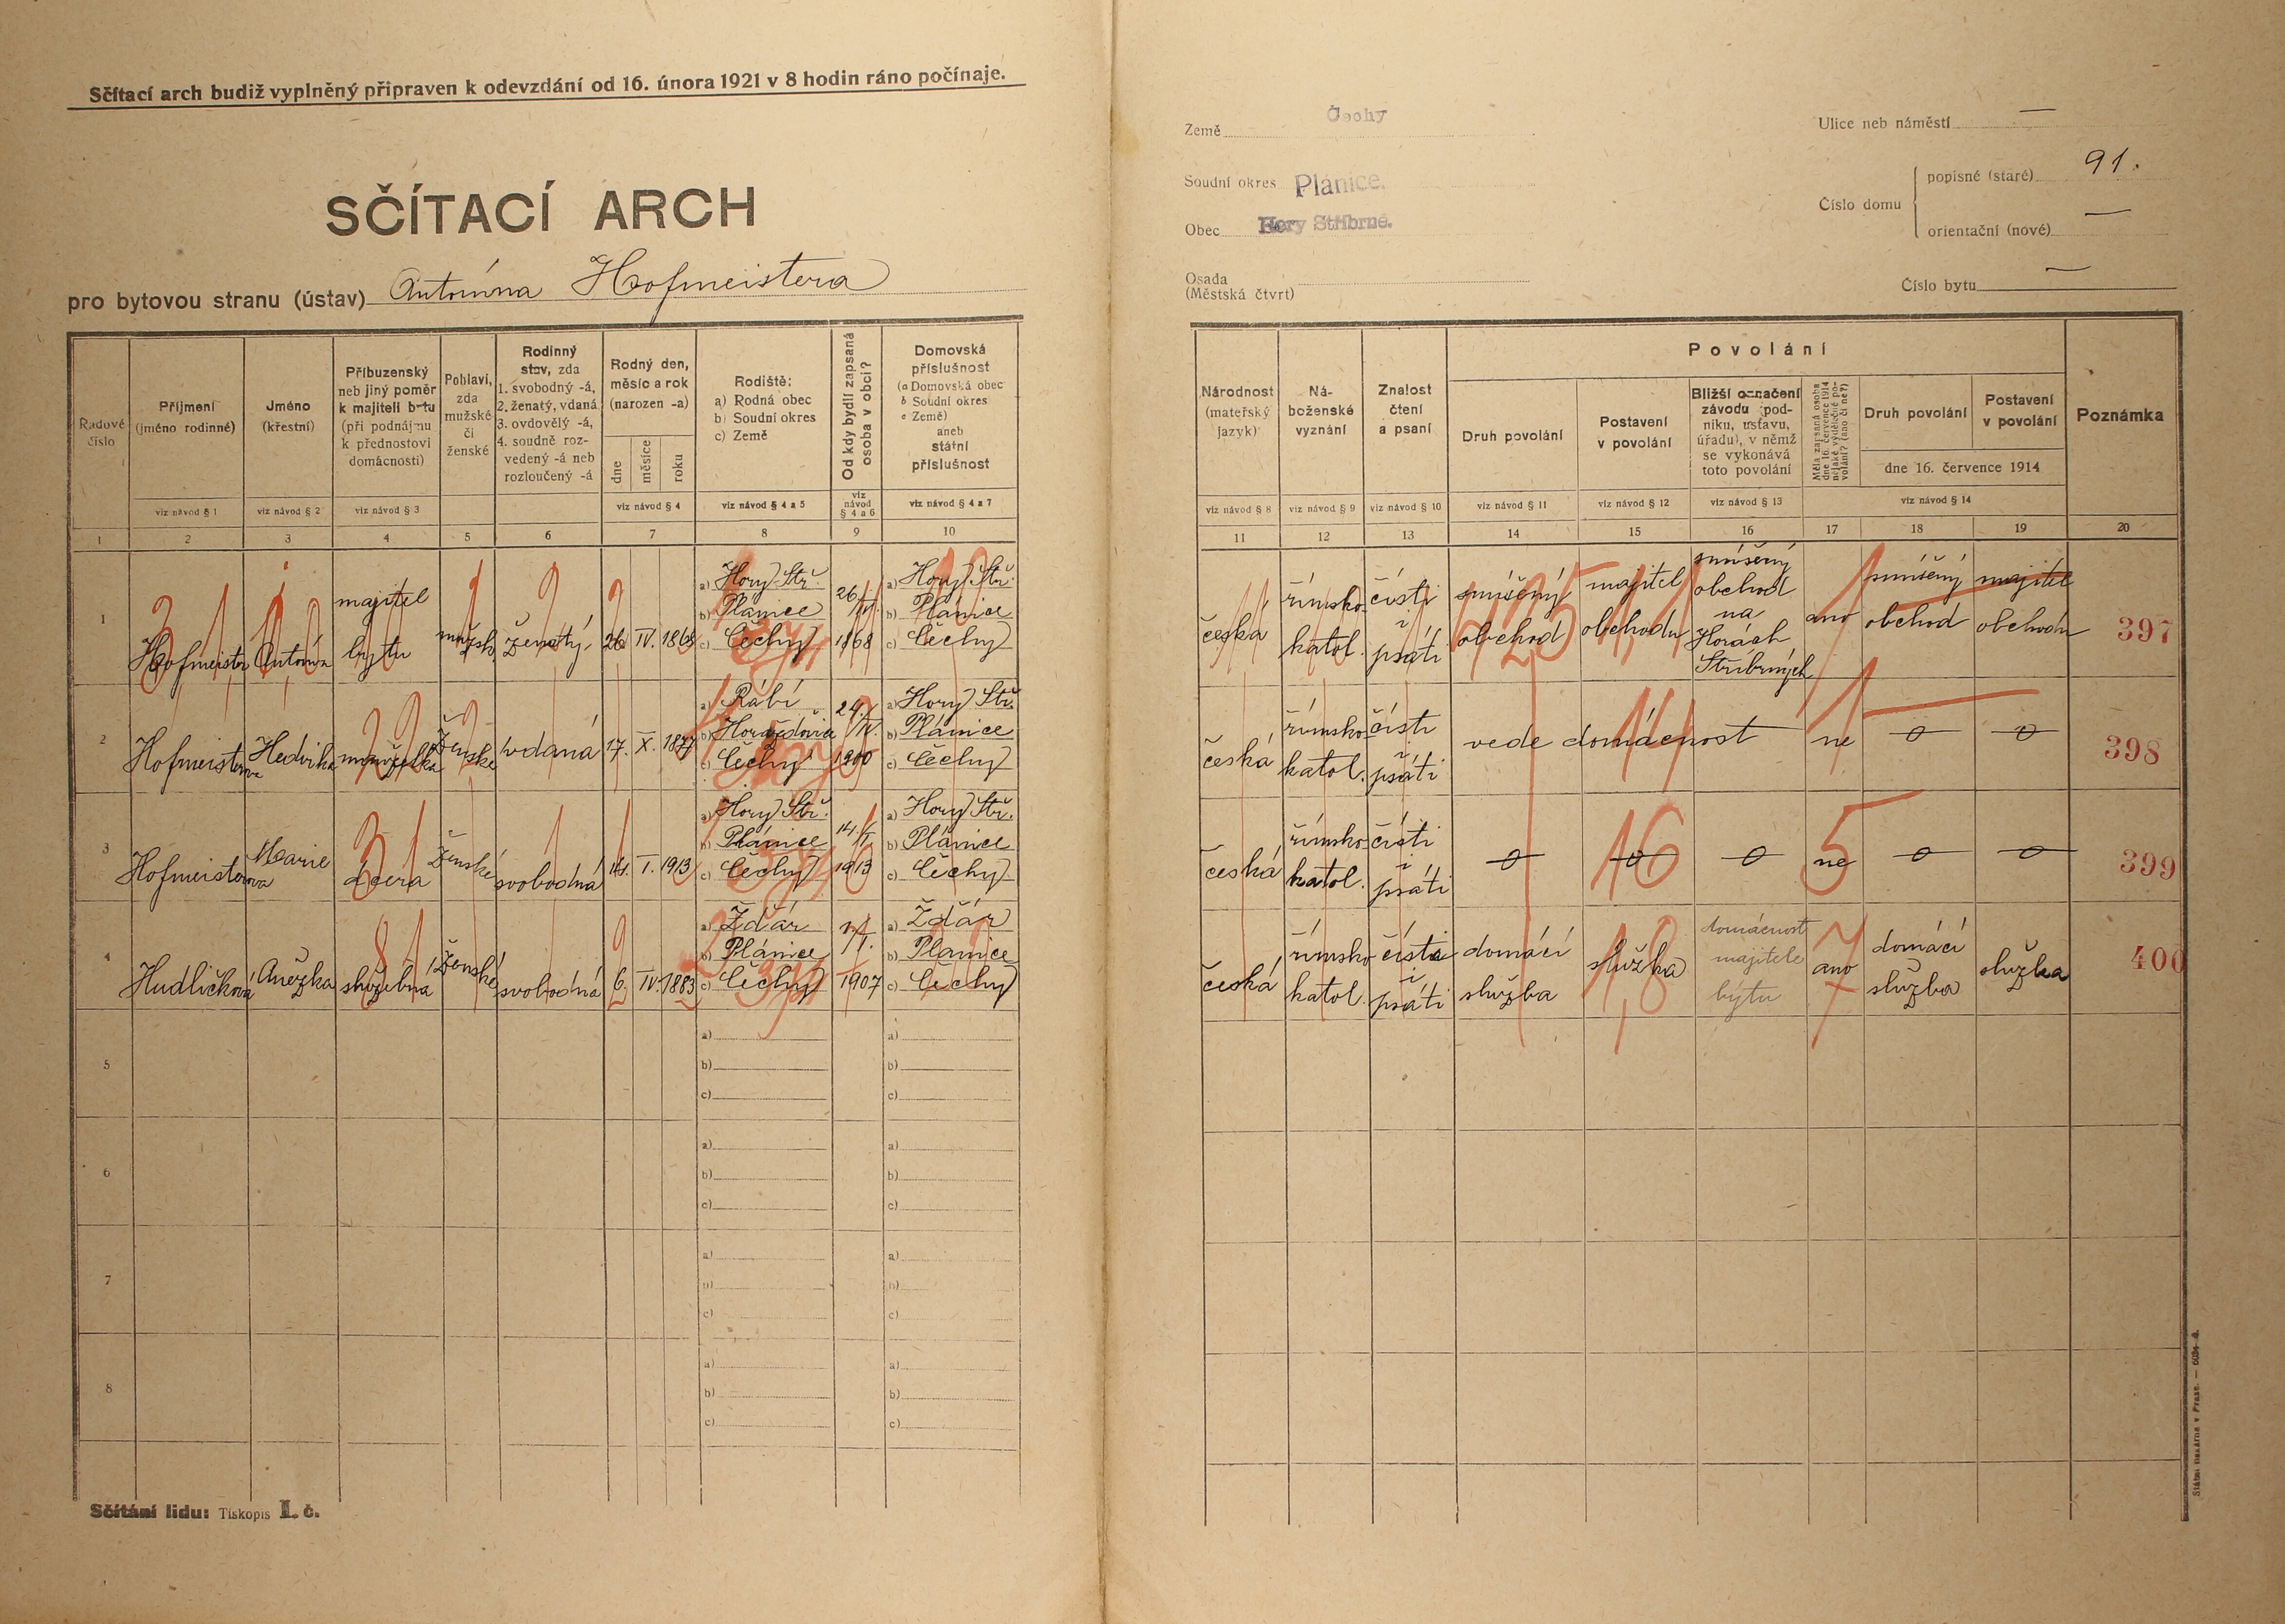 Sčítací arch budiž vyplněný připraven k odevzdání od 16. února 1921 v 8 hodin ráno počínaje.
SČÍTACÍ ARCH
pro bytovou stranu (ústav) Antonína Hofmeistera
Země Čechy
Soudní okres Plánice.
Obec Hory Stříbrné.
Osada
(Městská čtvrt)
Ulice neb náměstí —
Číslo domu
popisné (staré) 91.
orientační (nové) —
Číslo bytu —
Radové číslo
Příjmení (jméno rodinné)
Jméno (křestní)
Příbuzenský neb jiný poměr k majiteli bytu (při podnájmu k přednostovi domácnosti)
Pohlaví, zda mužské či ženské
Rodinný stav, zda 1. svobodný -á, 2. ženatý, vdaná 3. ovdovělý -á, 4. soudně rozvedený -á neb rozloučený -á
Rodný den, měsíc a rok (narozen -a)
dne měsíce roku
Rodiště: a) Rodná obec b) Soudní okres c) Země
Od kdy bydlí zapsaná osoba v obci?
Domovská příslušnost (a Domovská obec b Soudní okres c Země) aneb státní příslušnost
viz návod § 1
viz návod § 2
viz návod § 3
viz návod § 4
viz návod § 4 a 5
viz návod § 4 a 6
viz návod § 4 a 7
1 2 3 4 5 6 7 8 9 10
Národnost (mateřský jazyk)
Náboženské vyznání
Znalost čtení a psaní
Povolání
Druh povolání
Postavení v povolání
Bližší označení závodu (podniku, ústavu, úřadu), v němž se vykonává toto povolání
Měla zapsaná osoba dne 16. července 1914 nějaké výdělečné povolání? (ano či ne?)
Druh povolání
Postavení v povolání
dne 16. července 1914
Poznámka
viz návod § 8
viz návod § 9
viz návod § 10
viz návod § 11
viz návod § 12
viz návod § 13
viz návod § 14
11 12 13 14 15 16 17 18 19 20
1 Hofmeister Antonín majitel bytu mužsk. ženatý 26. IV. 1868
a) Hory Stř.
b) Plánice
c) Čechy
26/IV. 1868
a) Hory Stř.
b) Plánice
c) Čechy
česká římsko katol. čísti i psáti smíšený obchod majitel obchodu smíšený obchod na Horách Stříbrných ano smíšený obchod majitel obchodu 397
2 Hofmeisterova Hedvika manželka ženské vdaná 17. X. 1877
a) Rábí
b) Horažďovice
c) Čechy
24./IV. 1900
a) Hory Stř.
b) Plánice
c) Čechy
česká římsko katol. čísti i psáti vede domácnost ne 0 0 398
3 Hofmeisterova Marie dcera ženské svobodná 14. I. 1913
a) Hory Stř.
b) Plánice
c) Čechy
14./I. 1913
a) Hory Stř.
b) Plánice
c) Čechy
česká římsko katol. čísti i psáti 0 0 0 ne 0 0 399
4 Hudličková Anežka služebná ženské svobodná 6. IV. 1883
a) Ždár
b) Plánice
c) Čechy
1/I. 1907
a) Ždár
b) Planice
c) Čechy
česká římsko katol. čísti i psáti domácí služba služka domácnost majitele bytu ano domácí služba služka 400
5
a)
b)
c)
a)
b)
c)
6
a)
b)
c)
a)
b)
c)
7
a)
b)
c)
a)
b)
c)
8
a)
b)
c)
a)
b)
c)
Sčítání lidu: Tiskopis I. č.
Státní tiskárna v Praze. — 6034-